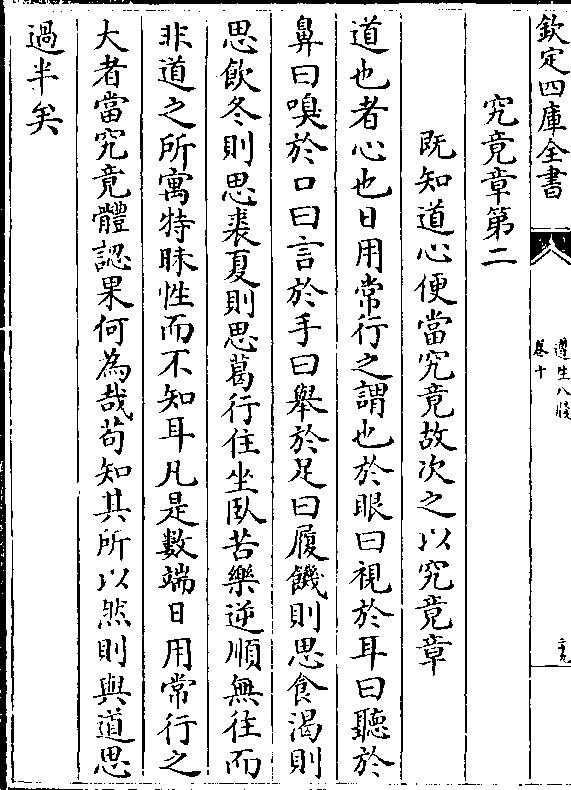 欽定四庫全書
遵生八牋
卷十
究竟章第二
既知道心便當究竟故次之以究竟章
道也者心也日用常行之謂也於眼曰視於耳曰聽於
鼻曰嗅於口曰言於手曰舉於足曰履饑則思食渴則
思飲冬則思裘夏則思葛行住坐臥苦樂逆順無往而
非道之所寓特昧性而不知耳凡是數端日用常行之
大者當究竟體認果何為哉苟知其所以然則與道思
過半矣